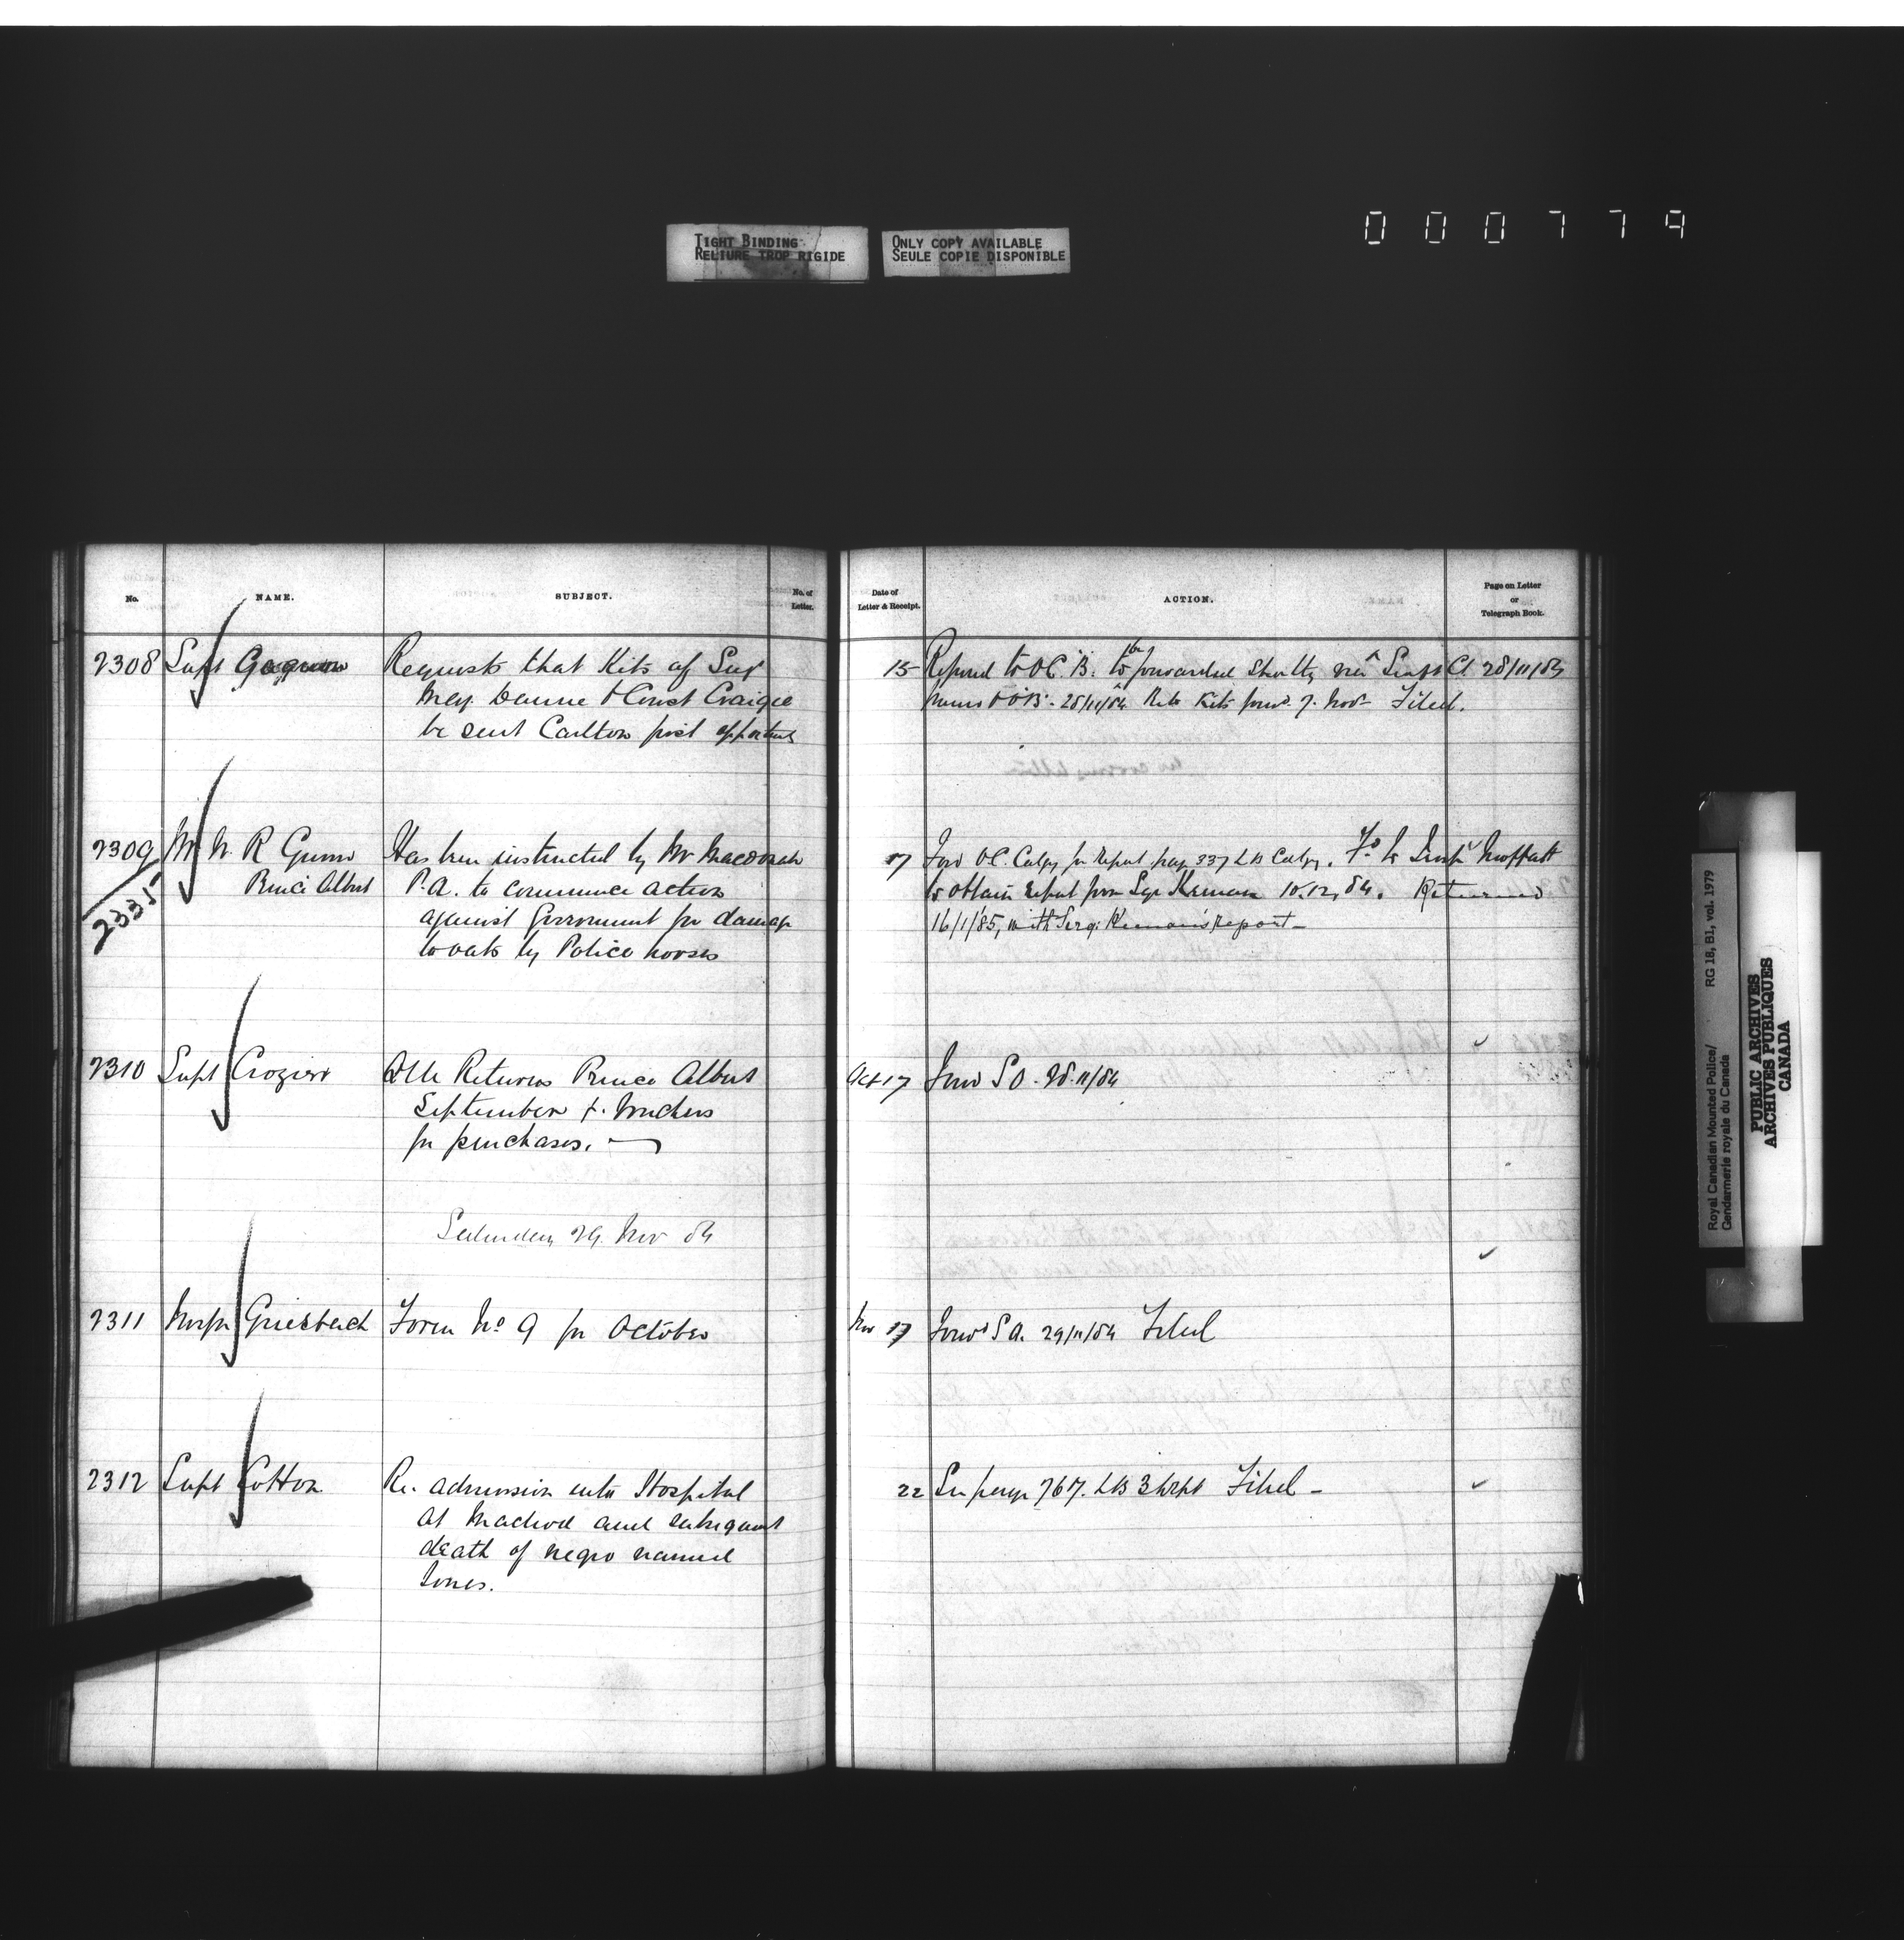 000779
TIGHT BINDING
RELIURE TROP RIGIDE
ONLY COPY AVAILABLE
SEULE COPIE DISPONIBLE
No.
NAME.
SUBJECT.
No. of
Letter.
Date of
Letter & Receipt.
ACTION.
Page on Letter
or
Telegraph Book.
2308 Supt Gagnon Requests that Kits of Sergt
Maj. & Const Craigie
be sent Carlton first
15 to O.C. "B." to be forwarded shortly Supt C. 28/11/84
28/11/84 Kits 7. Nov. Filed.
2309 Mr W. R Gunn Has been instructed by Mr
2335
Prince Albert P.A. to commence action
against Government for damage
to oats by Police horses
17 Forw O.C. Calgy for Report page 337 LB Calgy. to Moffatt
to obtain report from Sgt Keenan 10.12.84. Returned
16/1/85, with Serg: Keenan's report –
2310 Supt Crozier Returns Prince Albert
September & Vouchers
for purchases.
Oct 17 Forw S O. 28.11/84
Saturday 29. Nov 84
2311 Griesbach Form No 9 for October
Nov 17 Forwd S O. 29/11/84 Filed
2312 Supt Cotton Re. admission into Hospital
at Macleod and subsequent
death of negro named
Jones.
22 See page 767. LB 3 Filed –
Royal Canadian Mounted Police/ RG 18, B1, vol. 1979
Gendarmerie royale du Canada
PUBLIC ARCHIVES
ARCHIVES PUBLIQUES
CANADA